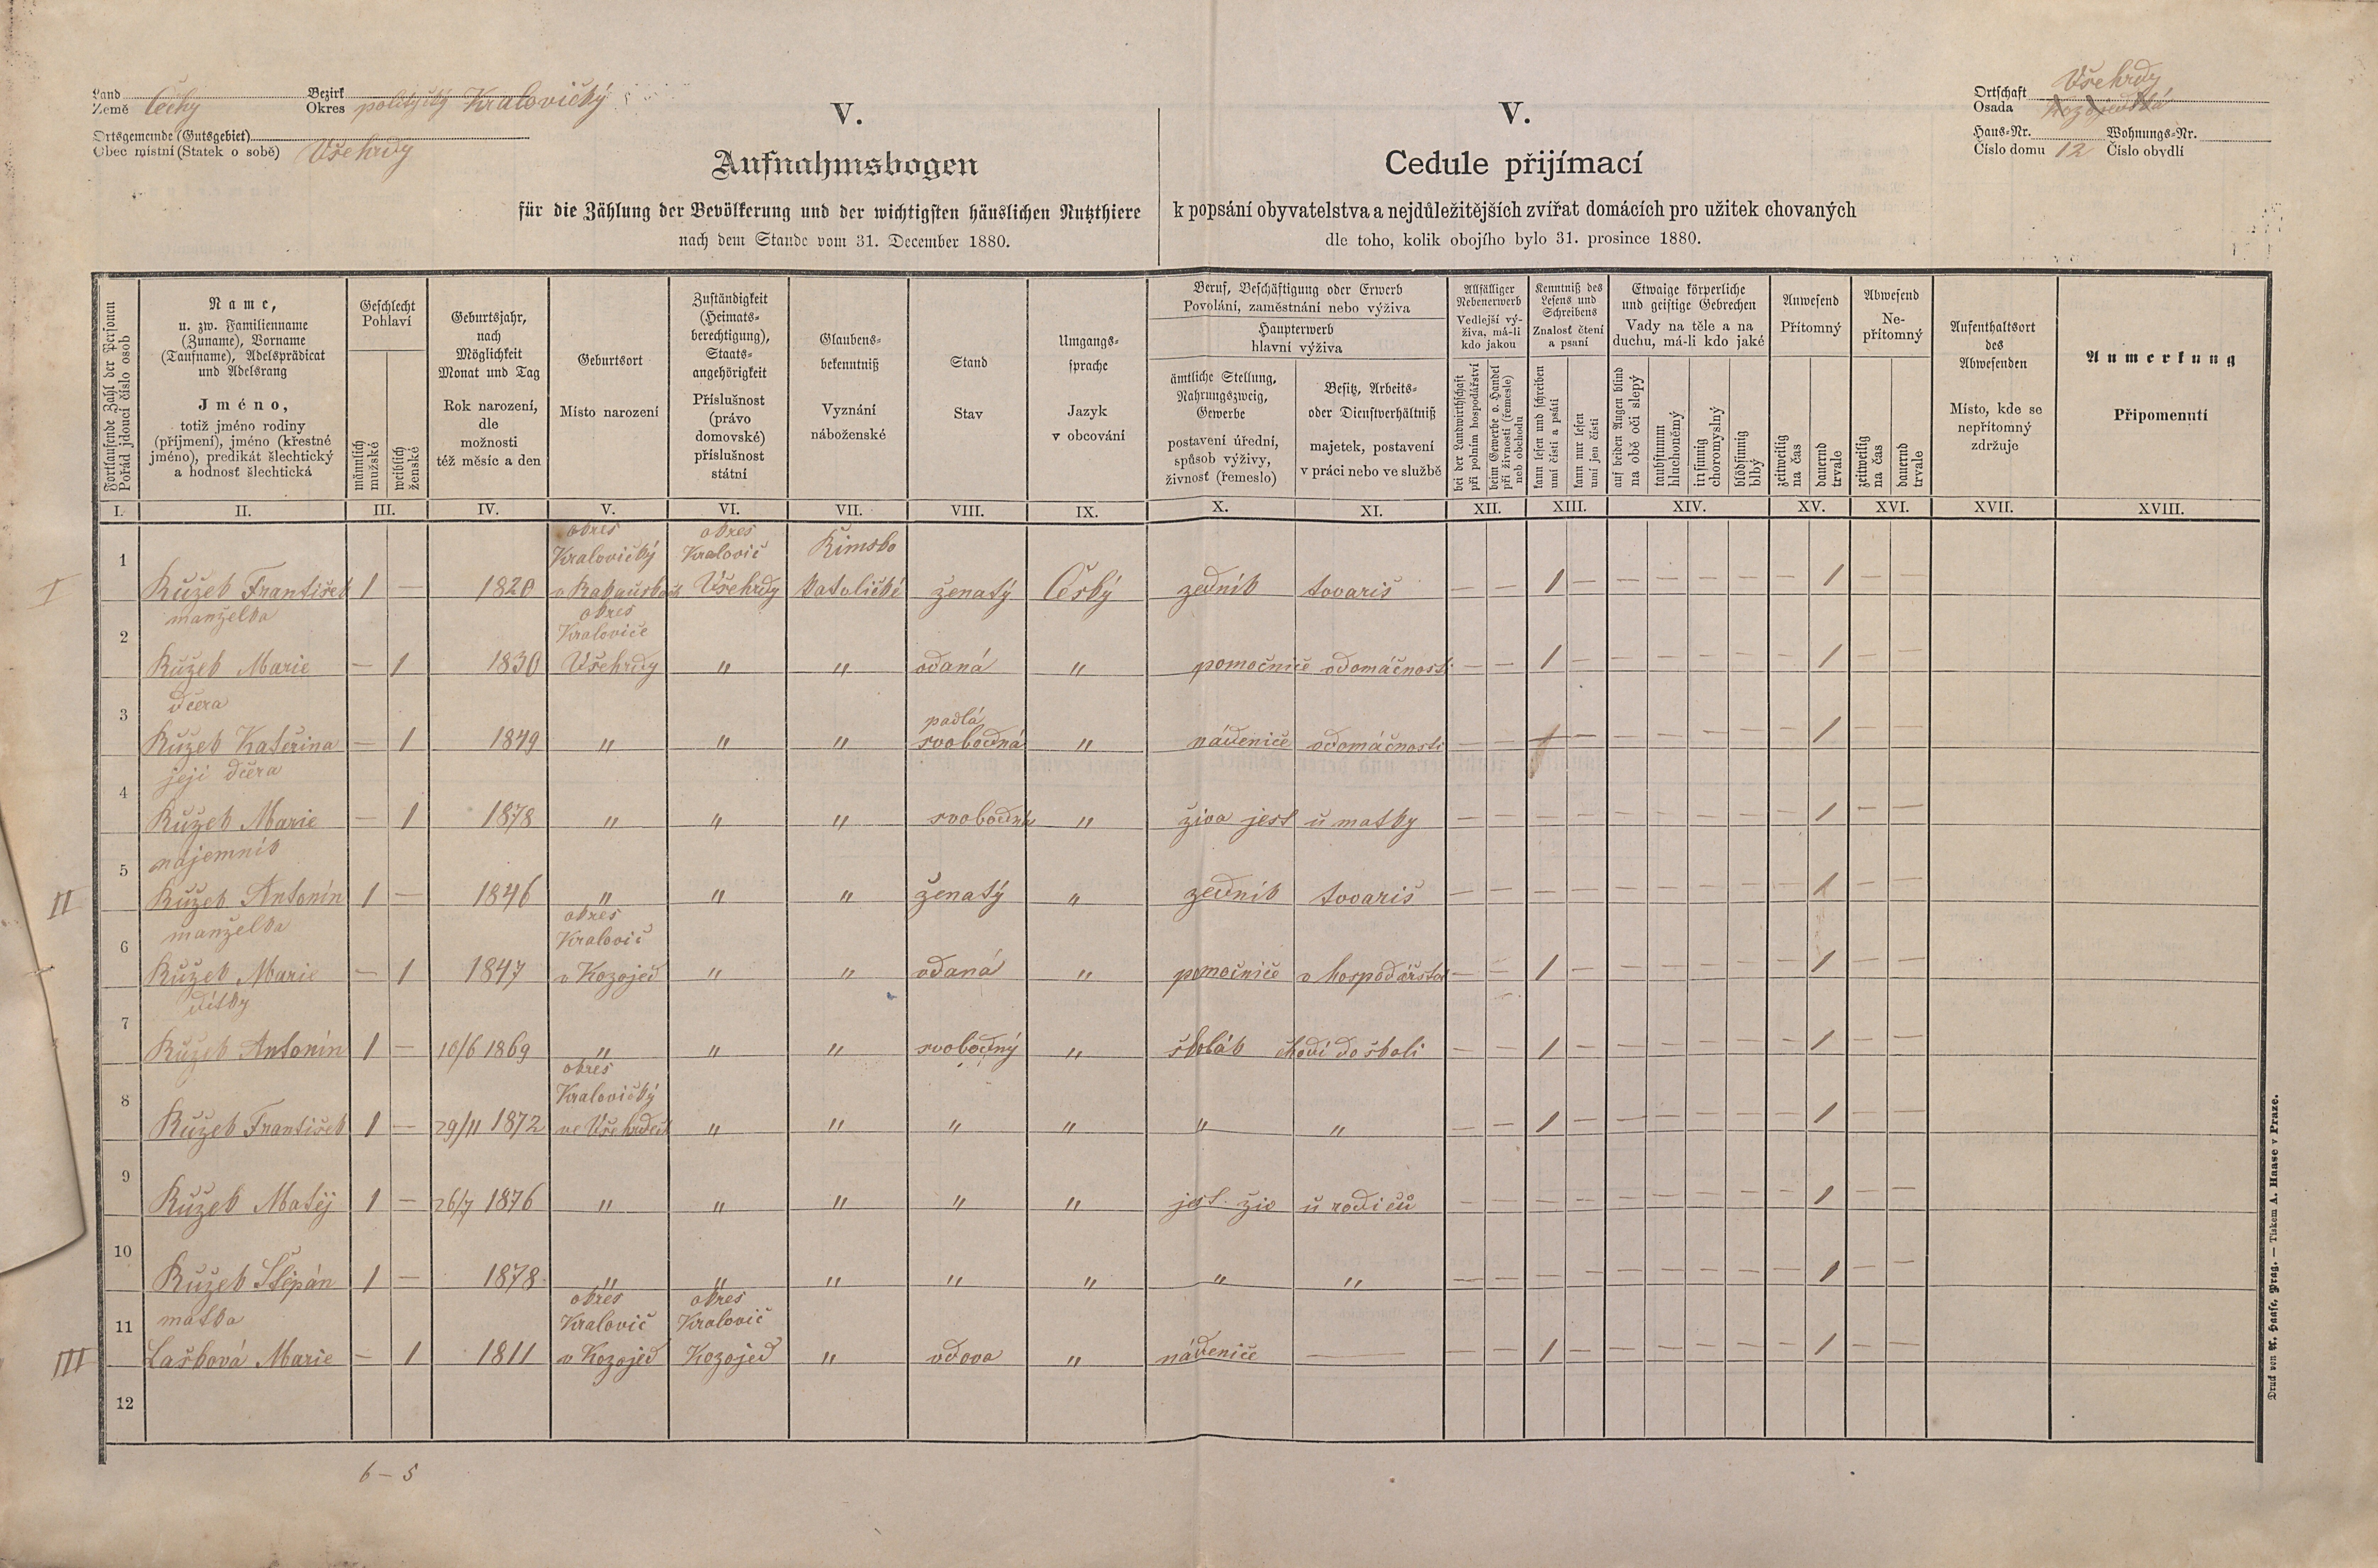 Land
Země Čechy
Bezirk
Okres politický Kralovičký
Ortsgemeinde (Gutsgebiet)
Obec místní (Statek o sobě) Všehrdy
V.
Aufnahmsbogen
für die Zählung der Bevölkerung und der wichtigsten häuslichen Nutzthiere
nach dem Stande vom 31. December 1880.
V.
Cedule přijímací
k popsání obyvatelstva a nejdůležitějších zvířat domácích pro užitek chovaných
dle toho, kolik obojího bylo 31. prosince 1880.
Ortschaft Všehrdy
Osada
Haus-Nr. Wohnungs-Nr.
Číslo domu 12 Číslo obydlí
Fortlaufende Zahl der Personen
Pořád jdoucí číslo osob
Name,
u. zw. Familienname
(Zuname), Vorname
(Taufname), Adelsprädicat
und Adelsrang
Jméno,
totiž jméno rodiny
(příjmení), jméno (křestné
jméno), predikát šlechtický
a hodnosť šlechtická
Geschlecht
Pohlaví
männlich
mužské
weiblich
ženské
Geburtsjahr,
nach
Möglichkeit
Monat und Tag
Rok narození,
dle
možnosti
též měsíc a den
Geburtsort
Místo narození
Zuständigkeit
(Heimats-
berechtigung),
Staats-
angehörigkeit
Příslušnost
(právo
domovské)
příslušnost
státní
Glaubens-
bekenntniß
Vyznání
náboženské
Stand
Stav
Umgangs-
sprache
Jazyk
v obcování
Beruf, Beschäftigung oder Erwerb
Povolání, zaměstnání nebo výživa
Haupterwerb
hlavní výživa
ämtliche Stellung,
Nahrungszweig,
Gewerbe
postavení úřední,
spůsob výživy,
živnosť (řemeslo)
Besitz, Arbeits-
oder Dienstverhältniß
majetek, postavení
v práci nebo ve službě
Allfälliger
Nebenerwerb
Vedlejší vý-
živa, má-li
kdo jakou
bei der Landwirthschaft
při polním hospodářství
beim Gewerbe o. Handel
při živnosti (řemesle)
neb obchodu
Kenntniß des
Lesens und
Schreibens
Znalosť čtení
a psaní
kann lesen und schreiben
umí čísti a psáti
kann nur lesen
umí jen čísti
Etwaige körperliche
und geistige Gebrechen
Vady na těle a na
duchu, má-li kdo jaké
auf beiden Augen blind
na obě oči slepý
taubstumm
hluchoněmý
irrsinnig
choromyslný
blödsinnig
blbý
Anwesend
Přítomný
zeitweilig
na čas
dauernd
trvale
Abwesend
Ne-
přítomný
zeitweilig
na čas
dauernd
trvale
Aufenthaltsort
des
Abwesenden
Místo, kde se
nepřítomný
zdržuje
Anmerkung
Připomenutí
I. II. III. IV. V. VI. VII. VIII. IX. X. XI. XII. XIII. XIV. XV. XVI. XVII. XVIII.
okres okres
Kralovičký Kralovic Řimsko
I 1 Růžek František 1 — 1820 Všehrdy katolické ženatý Český zedník tovariš — — 1 — — — — — — 1 — —
manželka okres
Kralovice
2 Růžek Marie — 1 1830 Všehrdy " " vdaná " pomocnice vdomácnosti — — 1 — — — — — — 1 — —
dcera
padlá
3 Růžek Kateřina — 1 1849 " " " svobodná " nádenice vdomácnosti — — 1 — — — — — — 1 — —
její dcera
4 Růžek Marie — 1 1878 " " " svobodná " živa jest u matky — — — — — — — — — 1 — —
nájemník
II 5 Růžek Antonín 1 — 1846 " " " ženatý " zedník tovariš — — — — — — — — — 1 — —
manželka okres
Kralovic
6 Růžek Marie — 1 1847 v Kozojed " " vdaná " pomocnice v hospodářstvi — — 1 — — — — — — 1 — —
dítky
7 Růžek Antonín 1 — 10/6 1869 " " " svobodný " školák chodí do školi — — 1 — — — — — — 1 — —
okres
Kralovičký
8 Růžek František 1 — 29/11 1872 ve Všehrdech " " " " " " — — 1 — — — — — — 1 — —
9 Růžek Matěj 1 — 26/7 1876 " " " " " jest živ u rodičů — — — — — — — — — 1 — —
10 Růžek Štěpán 1 — 1878 " " " " " " " — — — — — — — — — 1 — —
matka okres okres
Kralovic Kralovic
III 11 Lašková Marie — 1 1811 v Kozojed Kozojed " vdova " nádenice — — — 1 — — — — — — 1 — —
12
6 — 5
Druck von A. Haase, Prag. — Tiskem A. Haase v Praze.